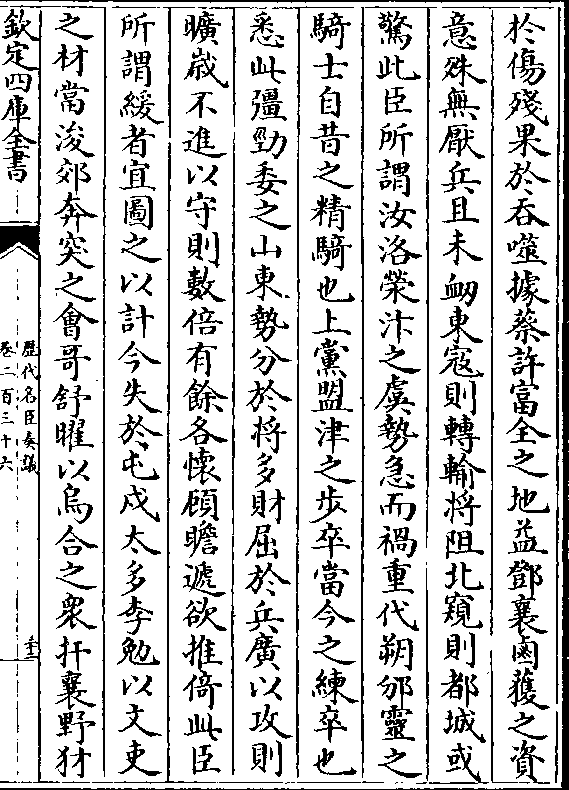 於傷殘果於吞噬據蔡許富全之地益鄧襄鹵獲之資
意殊無厭兵且未衂東寇則轉輸將阻北窺則都城或
驚此臣所謂汝洛榮汴之虞勢急而禍重代朔邠靈之
騎士自昔之精騎也上黨盟津之步卒當今之練卒也
悉此彊勁委之山東勢分於將多財屈於兵廣以攻則
曠歲不進以守則數倍有餘各懷顧瞻遞欲推倚此臣
所謂緩者宜圖之以計今失於屯戍太多李勉以文吏
之材當浚郊奔突之會哥舒曜以烏合之衆扞襄野犲
欽定四庫全書
歷代名臣奏議
卷二百三十六